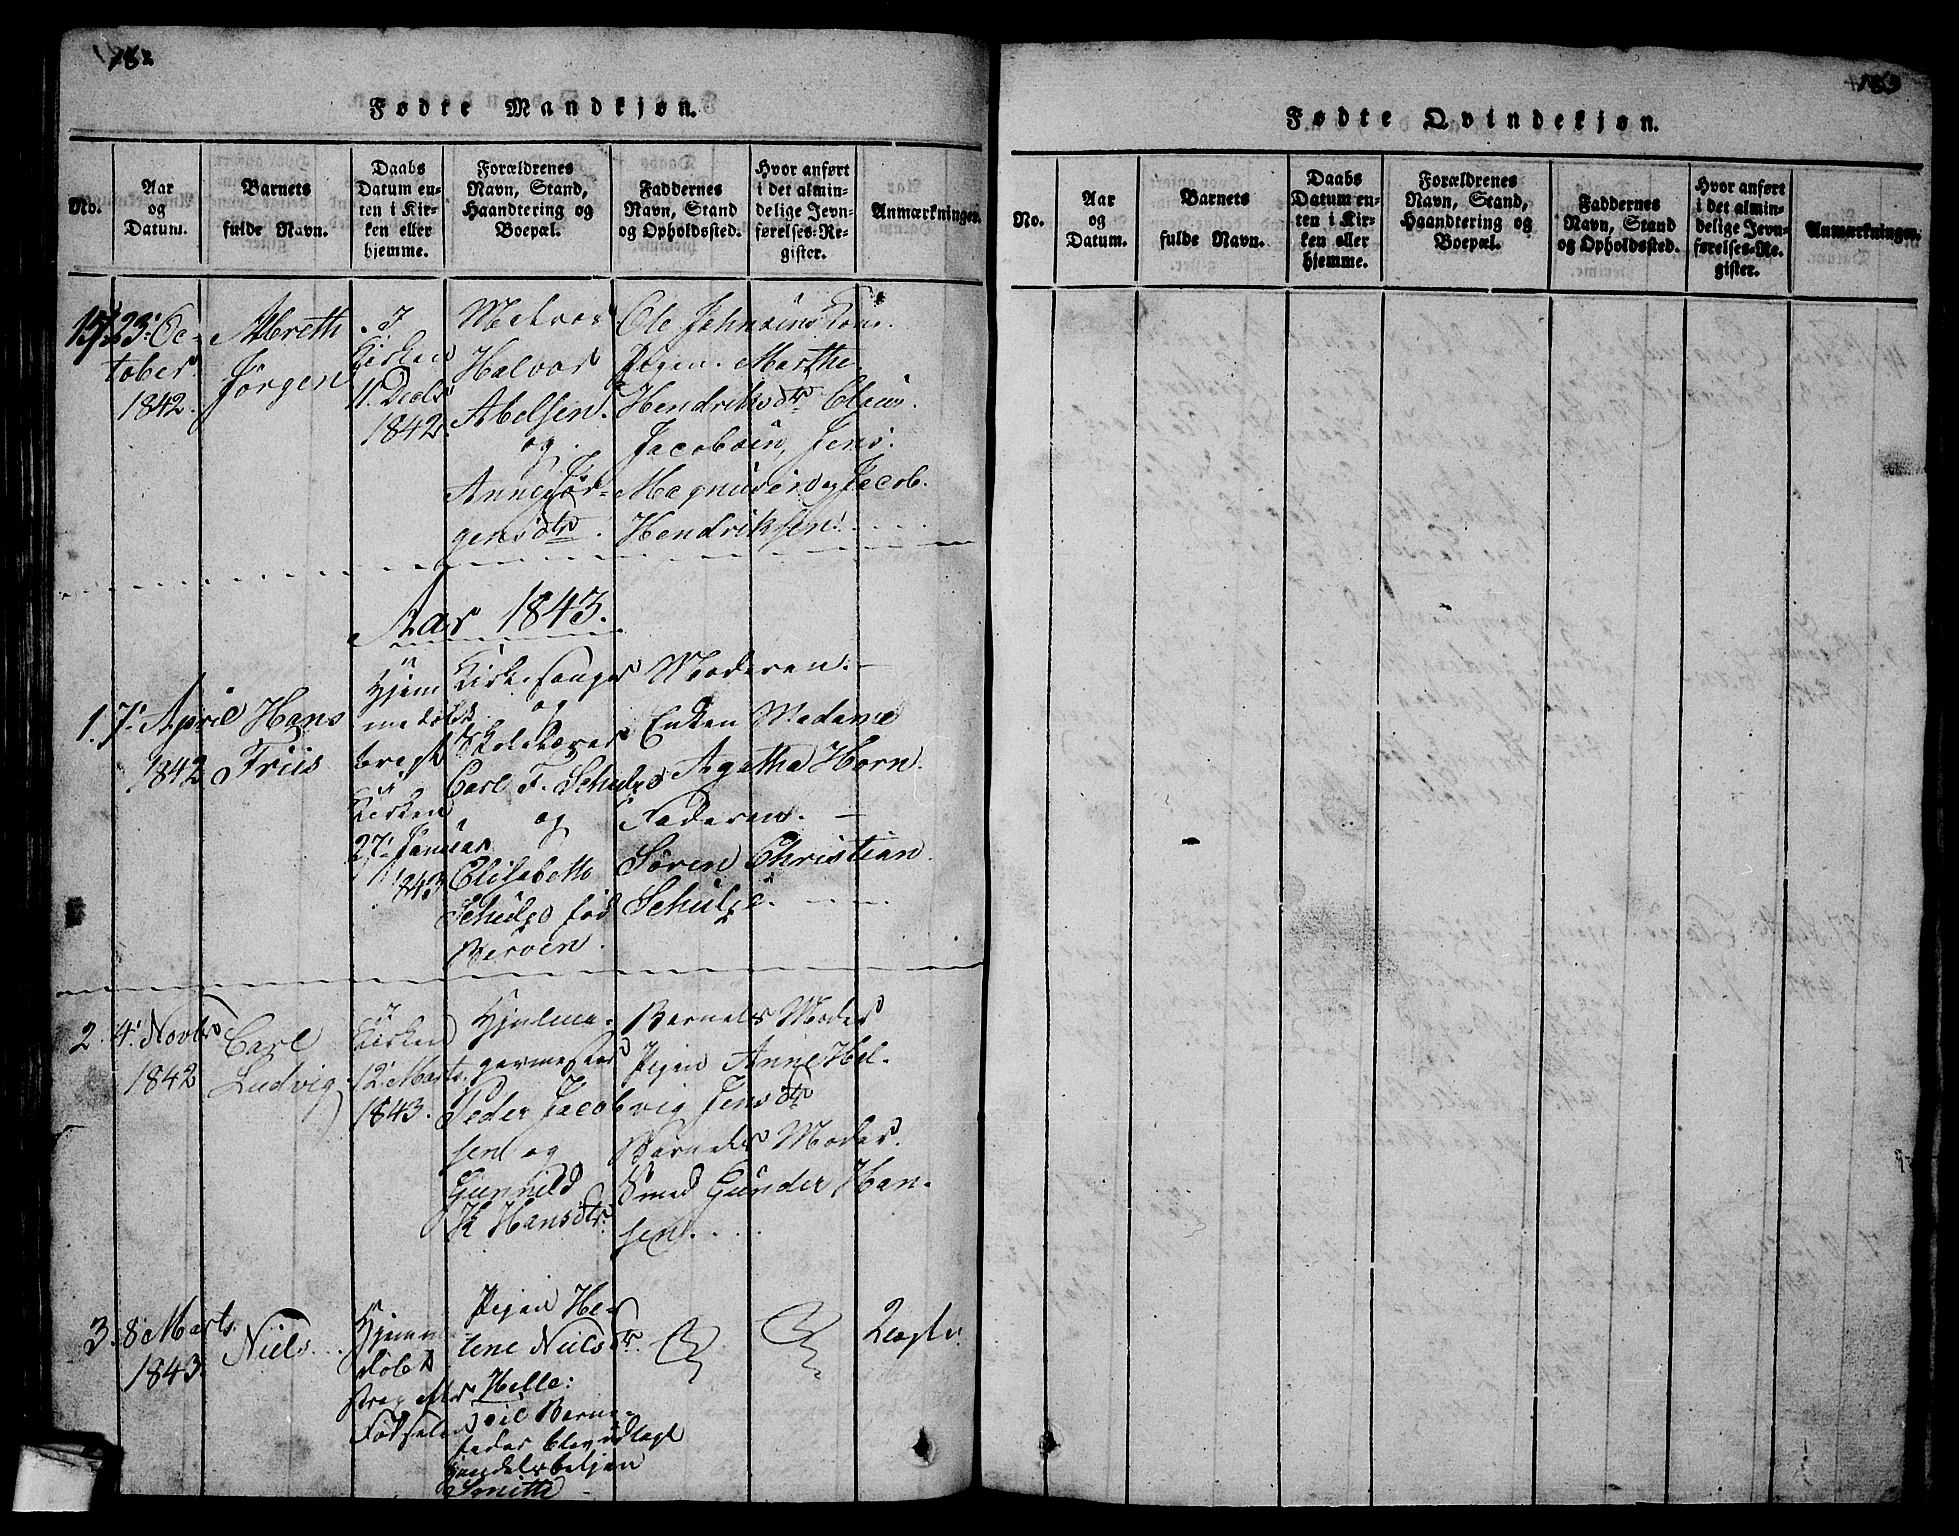 182
Fødte Mandkjøn.
No.
Aar
og
Datum.
Barnets
fulde Navn.
Daabs
Datum en-
ten i Kir-
ken eller
hjemme.
Forældrenes
Navn, Stand,
Haandtering og
Boepæl.
Faddernes
Navn, Stand
og Opholdssted.
Hvor anført
i det almin-
delige Jevn-
førelses-Re-
gister.
Anmærkninger.
15
23' Oc-
tober
1842.
Abreth
Jörgen
I
Kirken
11 Decbr
1842
Halvor
Abelsen.
og
Anne Jör-
gensdtr.
Ole Johnsens Kone.
Pigen Marthe
Hendriksdtr Claus
Jacobsen, Jens
Magnusen og Jacob
Hendriksen.
Aar 1843.
1.
7' April
1842
Hans
Friis
Hjem-
me döbt
bragt
i
Kirken
27' Januar
1843
Kirkesanger
og
Skolelærer
Carl F. Schulze
og
Elisabeth
Schulze föd
Berven.
Moderen.
Enken Madame
Agatha Horn.
Faderen.
Sören Christian
Schulze.
2.
4' Novbr
1842
Carl
Ludvig
I
Kirken
12' Marts
1843.
Peder Jacob-
sen og
Gunnild
K Hansdtr.
Barnets Moder
Pigen Anne Hel-
vig Jensdtr
Barnets Moder.
Smed Gunder Han-
sen.
3.
8' Marts
1843.
Niels
Hjemme-
döbt
strax efter
Födselen
Pigen He-
lene Nielsdtr
Helle:
til Barne-
fader blev udlagt
Handelsbetjen
Smith
Uægte
183
Fødte Qvindekjøn.
No.
Aar
og
Datum.
Barnets
fulde Navn.
Daabs
Datum en-
ten i Kir-
ken eller
hjemme.
Forældrenes
Navn, Stand,
Haandtering og
Boepæl.
Faddernes
Navn, Stand
og Opholdssted.
Hvor anført
i det almin-
delige Jevn-
førelses-Re-
gister.
Anmærkninger.